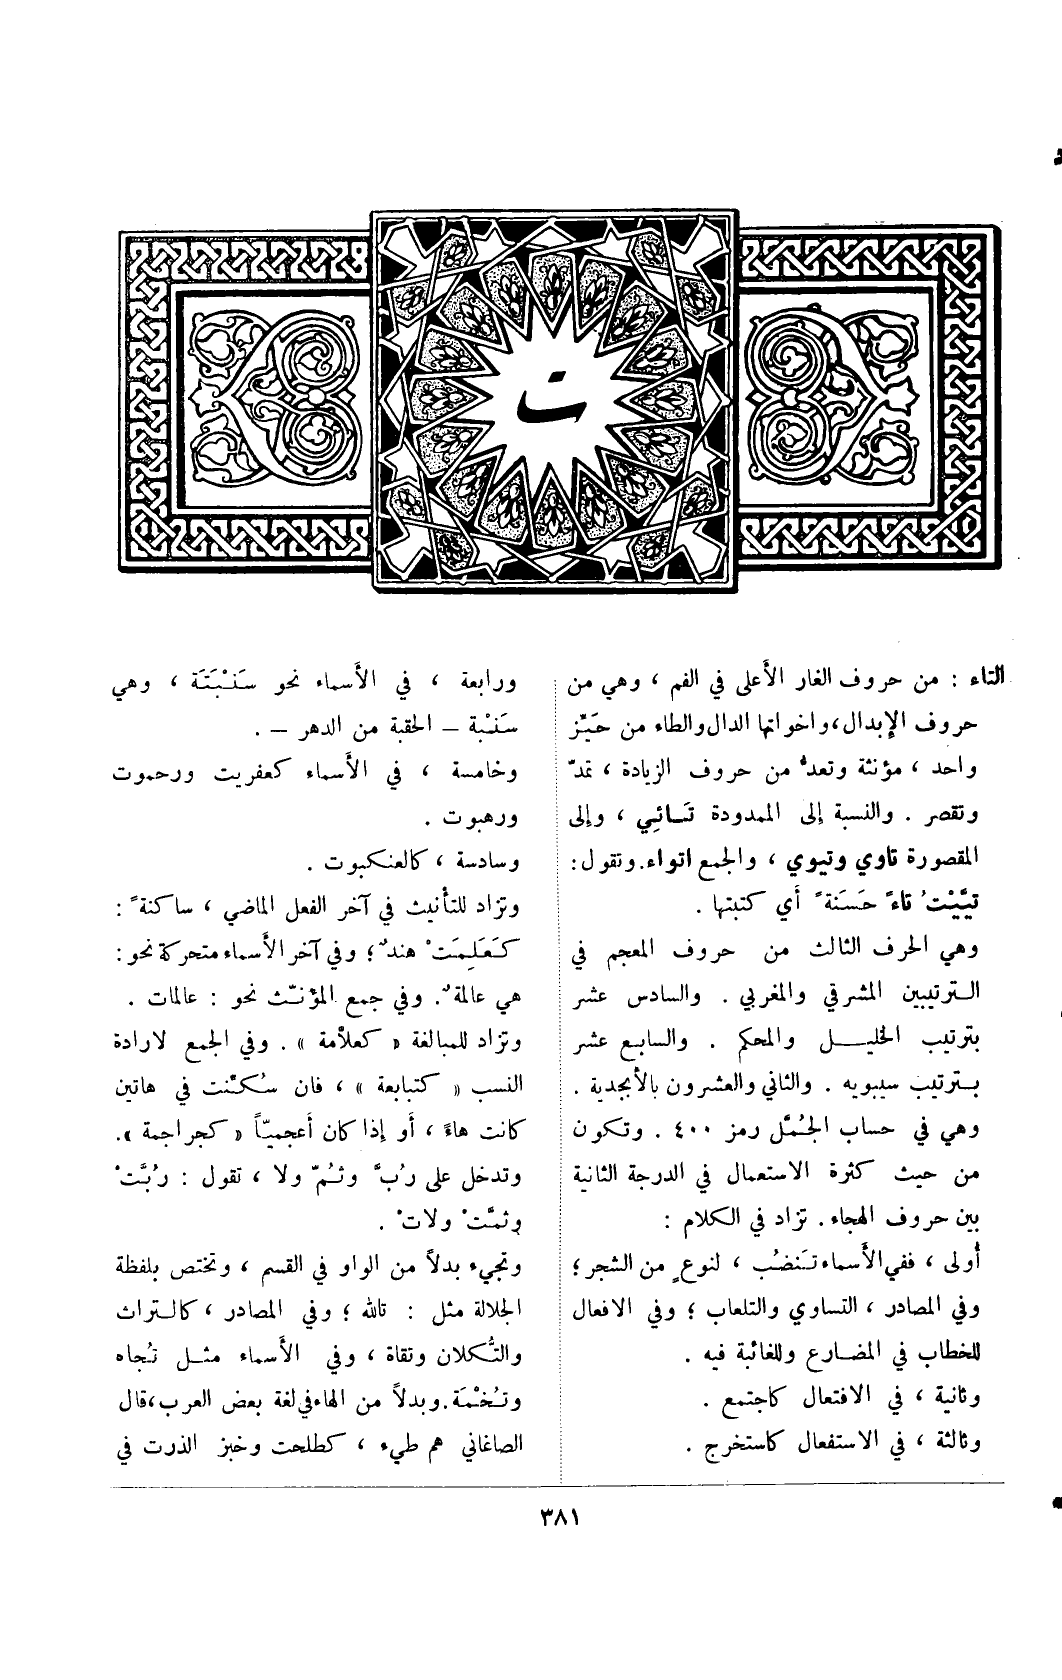 ت
التاء : من حروف الغار الأعلى في الفم ، وهي من
حروف الإبدال،واخواتها الدال والطاء من حَيِّز
واحد ، مؤنثة وتعدُّ من حروف الزيادة ، تمدّ
وتقصر . والنسبة إلى الممدودة تَـائِي ، وإلى
المقصورة تاوي وتيوي ، والجمع اتواء.وتقول:
تيَّيْتُ تاءً حَسَنَةً أي كتبتها .
وهي الحرف الثالث من حروف المعجم في
الترتيبين المشرقي والمغربي . والسادس عشر
بترتيب الخليل والمحكم . والسابع عشر
بترتيب سيبويه . والثاني والعشرون بالأبجدية .
وهي في حساب الجُمَّل رمز ٤٠٠ . وتكون
من حيث كثرة الاستعمال في الدرجة الثانية
بين حروف الهجاء . تزاد في الكلام :
أولى ، ففي الأسماء تَنضُب ، لنوعٍ من الشجر؛
وفي المصادر ، التساوي والتلعاب ؛ وفي الافعال
للخطاب في المضارع وللغائبة فيه .
وثانية ، في الافتعال كاجتمع .
وثالثة ، في الاستفعال كاستخرج .
ورابعة ، في الأسماء نحو سَنْبَتَة ، وهي
سَنْبة – الحقبة من الدهر – .
وخامسة ، في الأسماء كعفريت ورحموت
ورهبوت .
وسادسة ، كالعنكبوت .
وتزاد للتأنيث في آخر الفعل الماضي ، ساكنةً :
كَعَلِمَتْ هندٌ؛ وفي آخر الأسماء متحركة نحو :
هي عالمةٌ. وفي جمع المؤنّث نحو : عالمات .
وتزاد للمبالغة « كعلّامة » . وفي الجمع لارادة
النسب « كتبابعة » ، فان سُكّنت في هاتين
كانت هاءً ، أو إذا كان أعجميّاً « كجراجمة ».
وتدخل على رُبَّ وثُمّ ولا ، تقول : رُبَّتْ
وثمَّتْ ولاتْ .
وتجيء بدلاً من الواو في القسم ، وتختص بلفظة
الجلالة مثل : تالله ؛ وفي المصادر ، كالتراث
والتُّكلان وتقاة ، وفي الأسماء مثل تُجاه
وتُخْمَة.وبدلاً من الهاء في لغة بعض العرب،قال
الصاغاني هم طيء ، كطلحت وخبز الذرت في
٣٨١